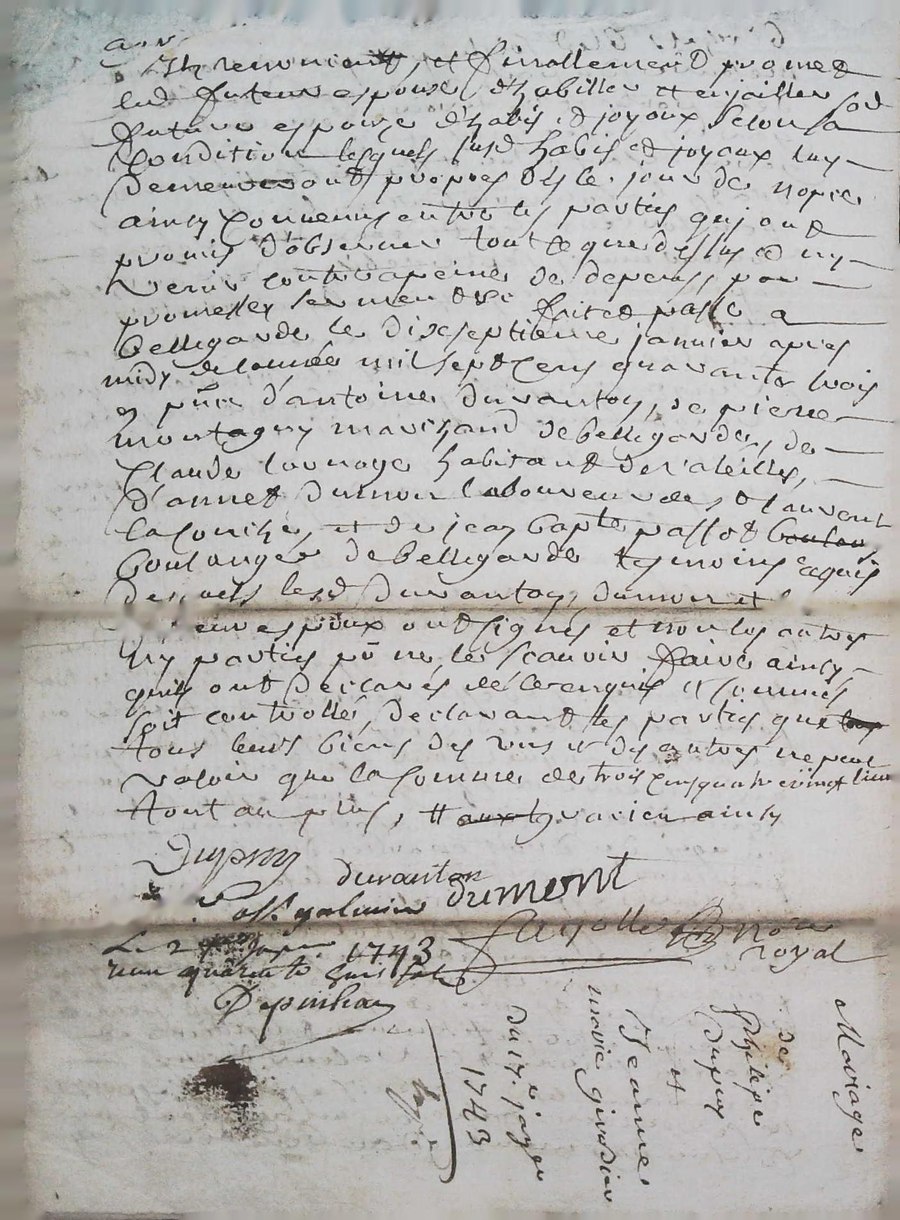 Ils renoncent, et finallement promet
led futeur espoux d'habiller et enjoailler sad
future espouze d'habis et joyaux selon sa
Condition lesquels susd habis et joyaux luy
demeureront propres dès le jour de nopce
ainsy convenus entre les parties qui ont
promis d'observer tout ce que dessus et ny
venir contre a peine de depens, par
promesses serment &c faict et passé a
bellegarde le dixseptieme janvier apres
midy de l'année mil sept Cens quarante trois
en pñce d'antoine duranton, de pierre
montagny marchand de bellegarde, de
Claude habitant de
d'annet dumon laboureur de St laurent
la Conche, et de jean bapte passot
boulanger de bellegarde tesmoins requis
desquels lesd duranton, dumon et
espoux ont signés et non les autres
ny parties pñ ne le scavoir faire ainsy
quils ont declarés de ce enquis et sommés
soit controllé, declarant les parties que
tous leurs biens des uns et des autres ne peut
valoir que la somme de trois cens quatre vingt livres
tout au plus,
Dupuy
duranton
dumont
fayolle no.re
royal
Le 2 1743
quarante huit sols
Depinhac
Mariage
de
Philipe
Dupuy
et
Jeanne
marie girardier
Du 17e janv.er
1743